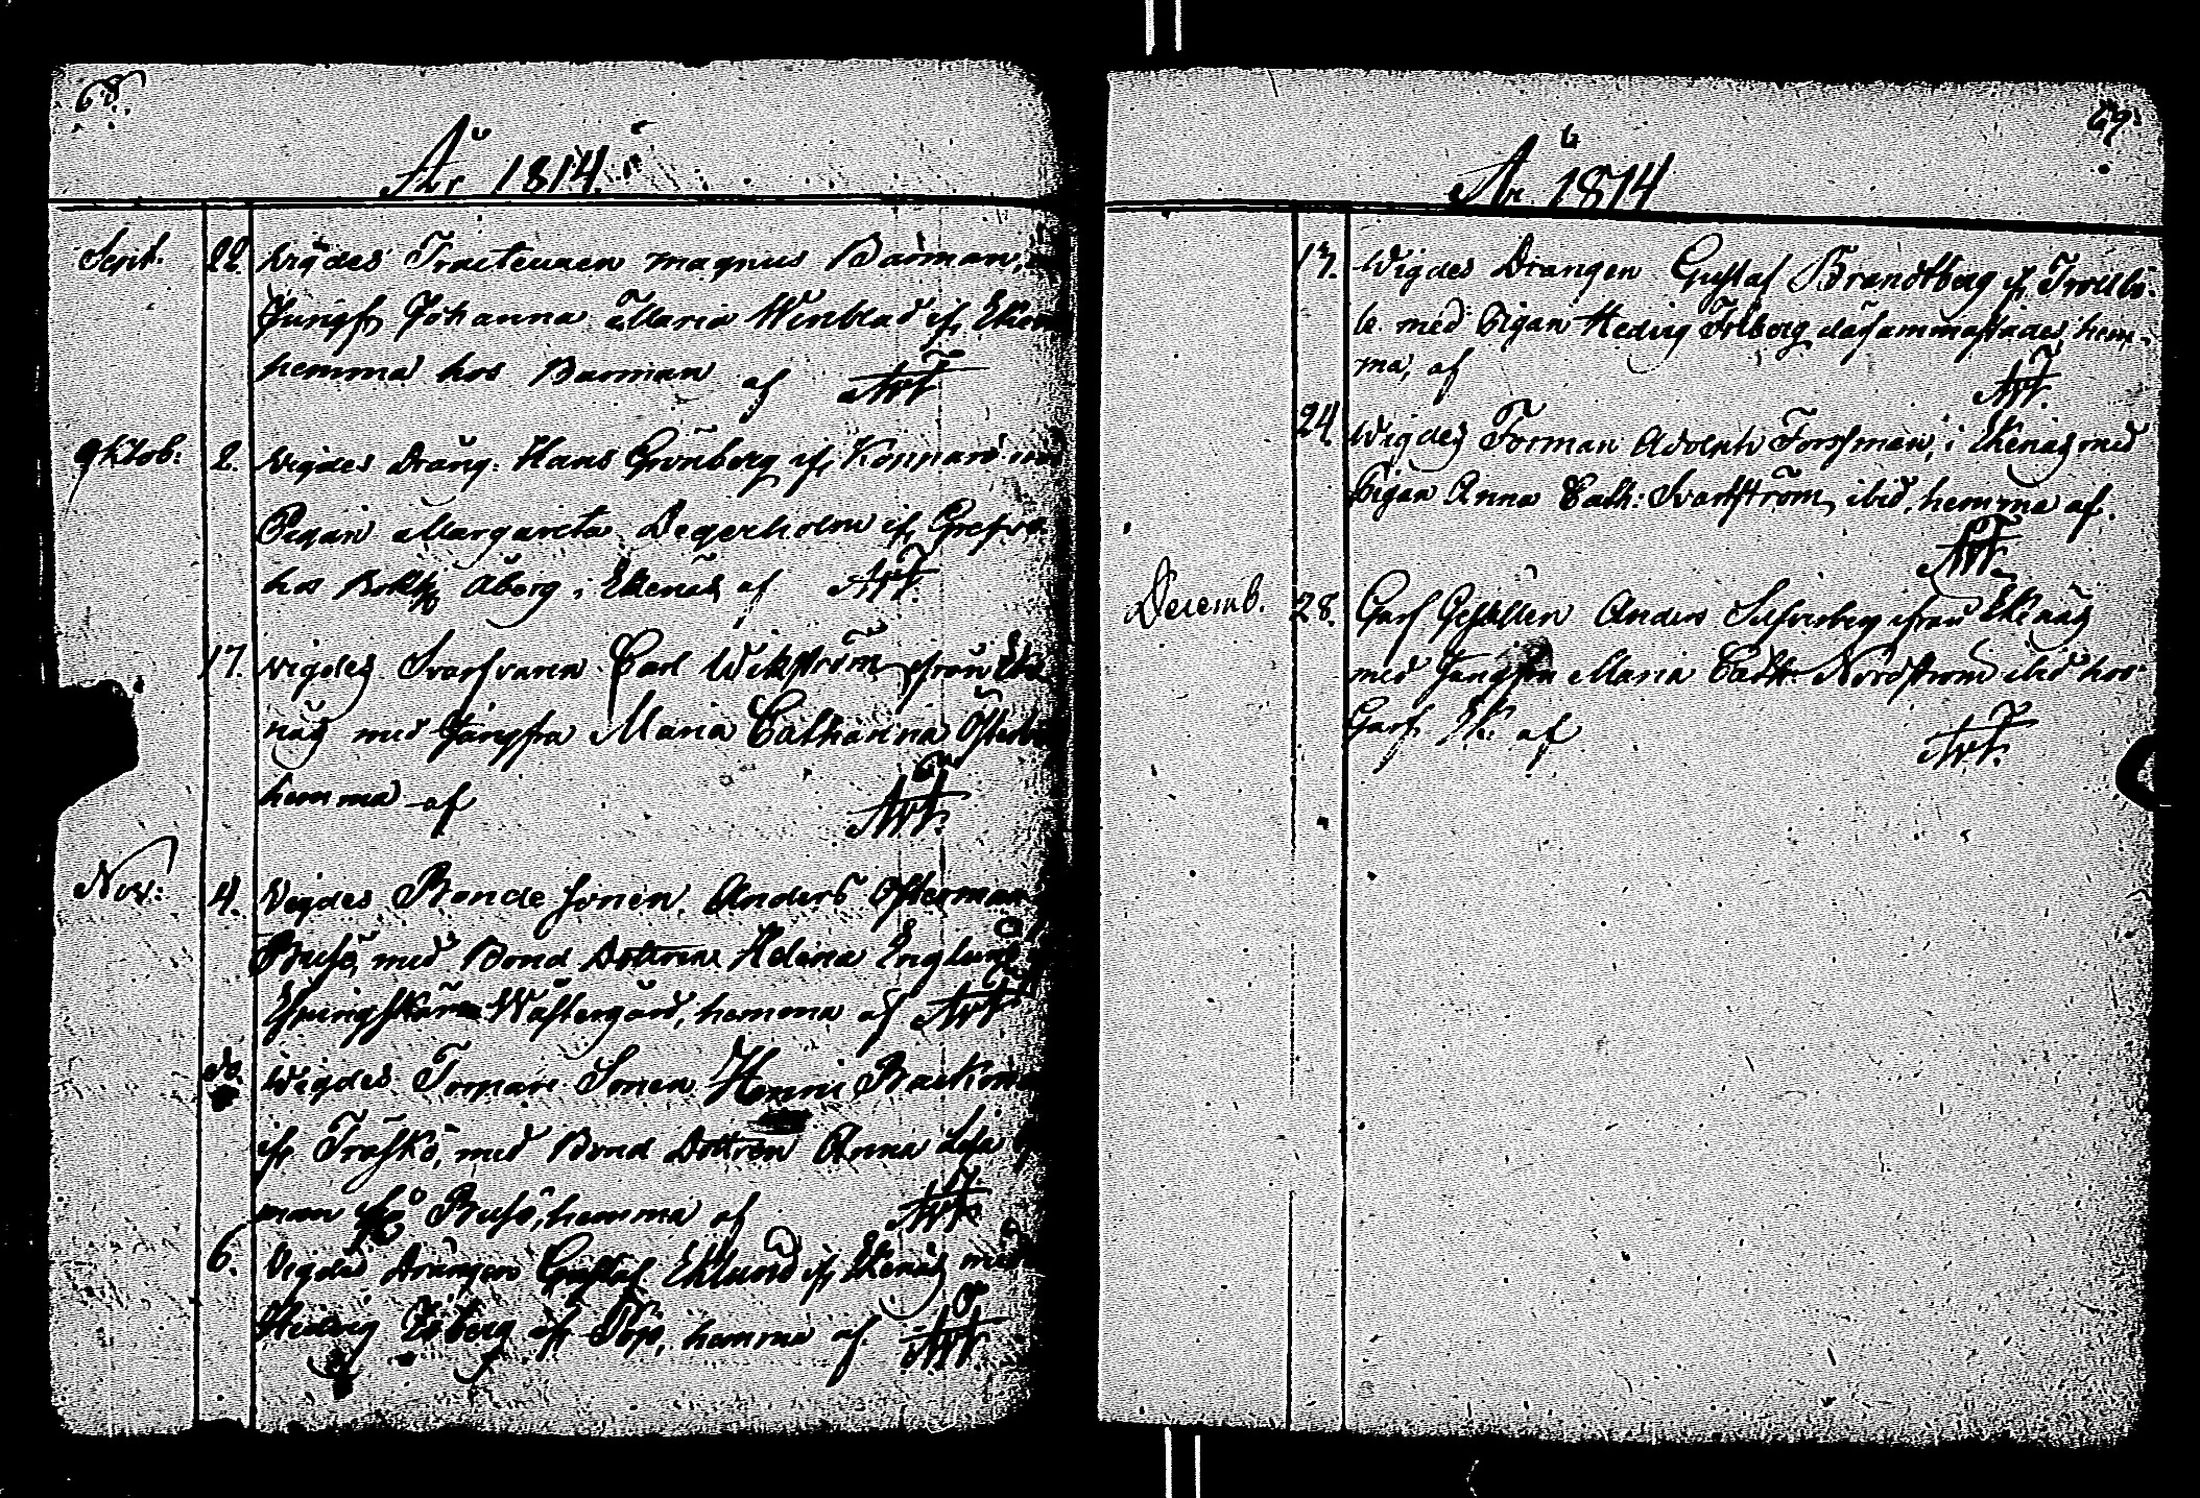 68.
År 1814.
Sept. 22. Wigdes Tracteuren Magnus Barman,
Jungfr Johanna Maria Winblad ifr
hemma hos Barman af
Oktob. 2. Wigdes Dräng. Hans Grönberg ifr Koppar
Pigan Margareta Degerholm ifr
hos Bokh Åberg i Ekenäs af
17. Wigdes Svarfvaren Carl Wikström ifrån Eke
näs med Jungfru Maria Catharina
hemma af
Nov: 4. Wigdes Bonde sonen Anders Österman
Busö, med Bond Dottren Helena Englund
Wästergård, hemma af
do. Wigdes Torpare Sonen Henric
ifr Träskö, med Bond Dottren Anna Lisa
man ifr Busö, hemma af
6. Wigdes Drängen Gustaf Eklund ifr Ekenäs med
Hedvig ifr hemma af
69.
År 1814
13. Wigdes Drängen Gustaf Brandtberg ifr Trollbö
le med Pigan Hedvig dersammastädes, hem-
ma, af
24 Wigdes Forman Adolph Forssman, i Ekenäs med
Pigan Anna Cath: Svartström, ibid, hemma af.
Decemb. 28. Garf Gesällen Anders Silfverberg ifrån Ekenäs
med Jungfru Maria Cath: Nordström ibid hos
Garf. af